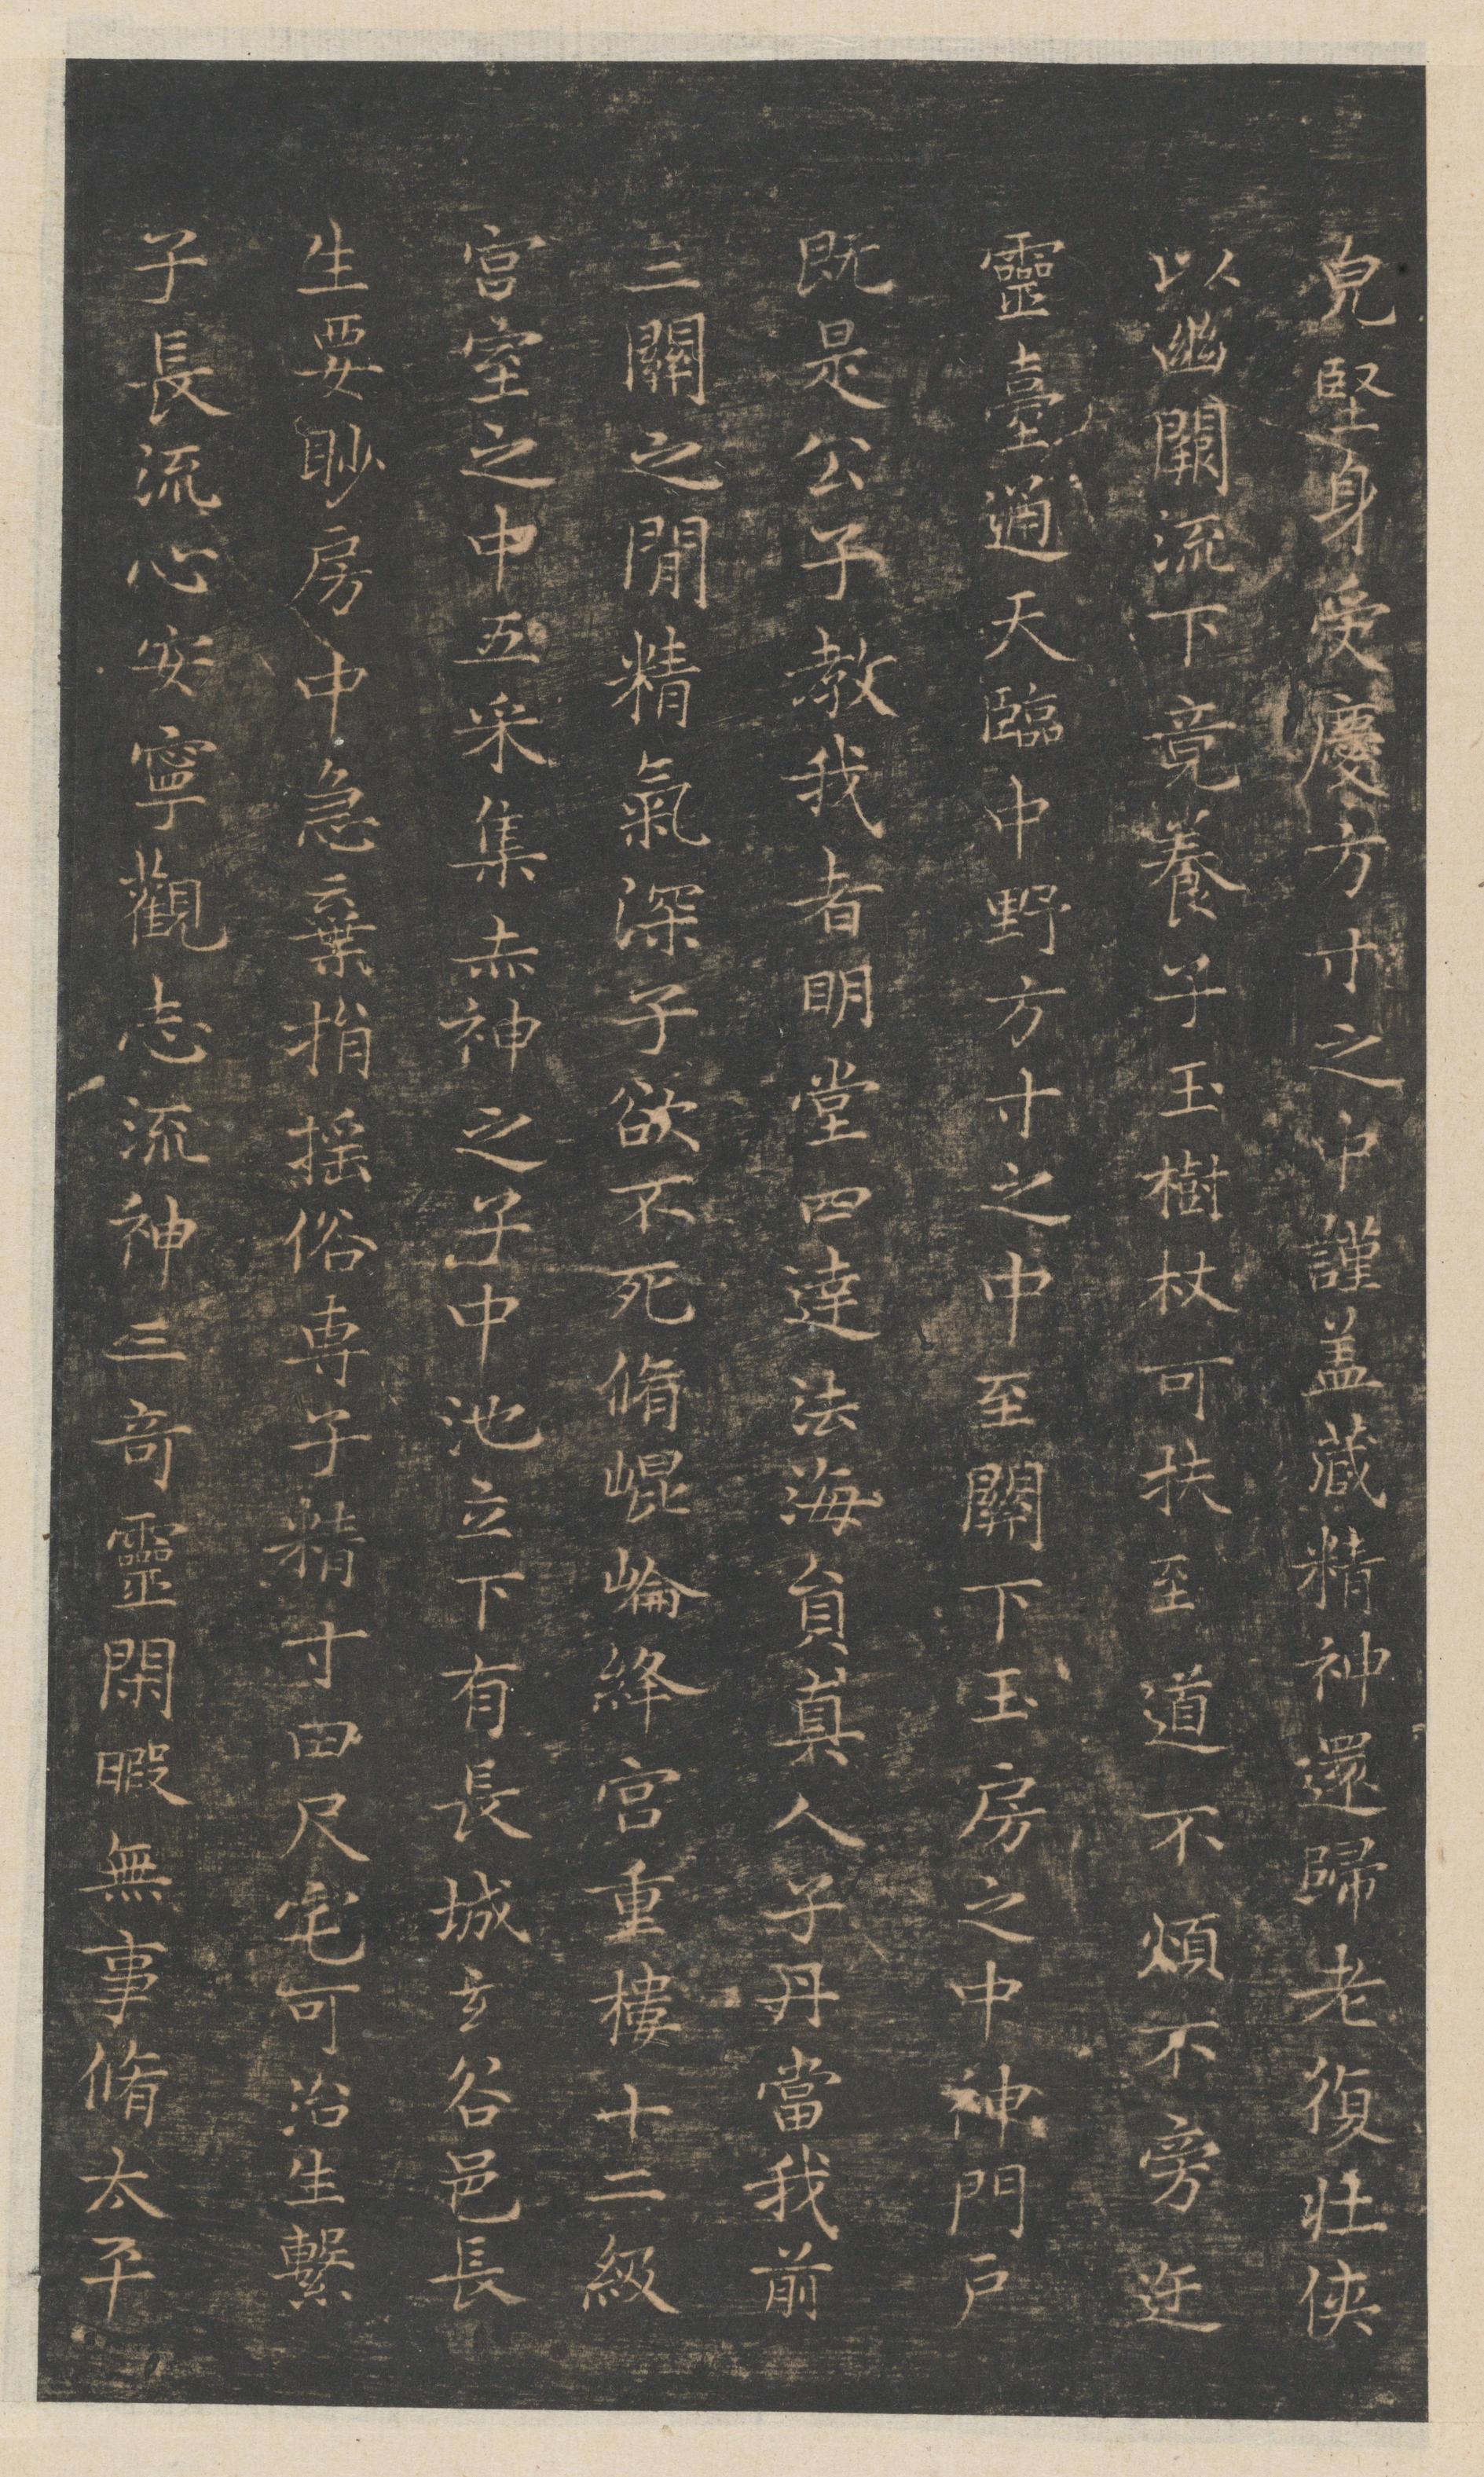 皃堅身受慶方寸之中謹盖藏精神還歸老復壯俠
以幽闕流下竟養子玉樹杖可扶至道不煩不旁迕
靈臺通天臨中野方寸之中至關下玉房之中神門戶
既是公子教我者明堂四達法海負真人子丹當我前
三關之閒精氣深子欲不死脩崐崘絳宮重樓十二級
宮室之中五采集赤神之子中池立下有長城玄谷邑長
生要眇房中急棄捐搖俗專子精寸田尺宅可治生繫
子長流心安寧觀志流神三奇靈閑暇無事脩太平